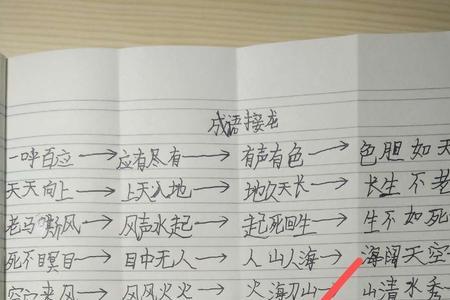 成语接龙
一呼百应→应有尽有→有声有色→色胆如天
天天向上→上天入地→地久天长→长生不老
老马嘶风→风声水起→起死回生→生不如死
死不瞑目→目中无人→人山人海→海阔天空
空穴来风→风风火火→火海刀山→山清水秀